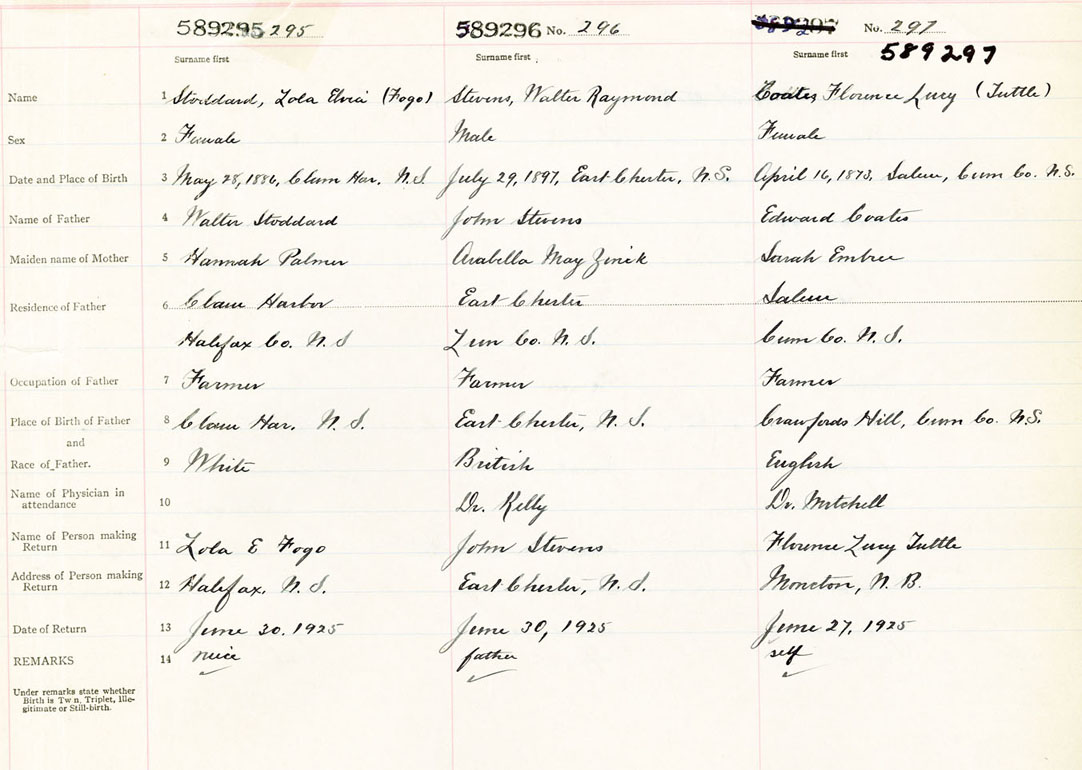 589295 295 589296 No. 296 No. 297
Surname first Surname first Surname first 589297
Name 1 Stoddard, Lola Elvia (Fogo) Stevens, Walter Raymond Coates Florence Lucy (Tuttle)
Sex 2 Female Male Female
Date and Place of Birth 3 May 28, 1886, Clam Har. N.S. July 29, 1897, East Chester, N.S. April 16, 1873, Salem, Cum Co. N.S.
Name of Father 4 Walter Stoddard John Stevens Edward Coates
Maiden name of Mother 5 Hannah Palmer Arabella May Zinck Sarah Embree
Residence of Father 6 Clam Harbor East Chester Salem
Halifax Co. N.S Lun Co. N.S. Cum Co. N.S.
Occupation of Father 7 Farmer Farmer Farmer
Place of Birth of Father 8 Clam Har. N.S. East Chester, N.S. Crawfords Hill, Cum Co. N.S.
and
Race of Father. 9 White British English
Name of Physician in
attendance 10 Dr. Kelly Dr. Mitchell
Name of Person making
Return 11 Lola E Fogo John Stevens Florence Lucy Tuttle
Address of Person making
Return 12 Halifax, N.S. East Chester, N.S. Moncton, N.B.
Date of Return 13 June 30. 1925 June 30, 1925 June 27, 1925
REMARKS 14 neice father self
Under remarks state whether
Birth is Tw n, Triplet, Ille-
gitimate or Still-birth.